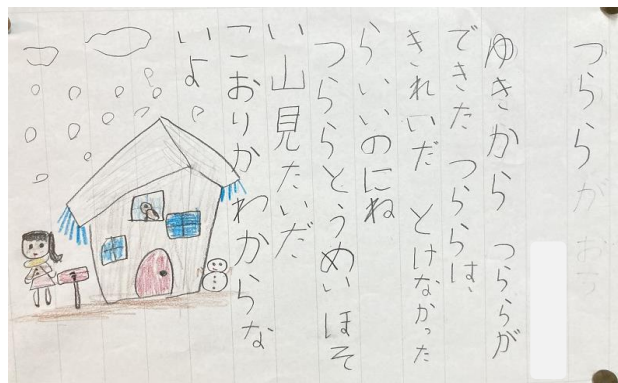 つらら
ゆきから つららが
できた つららは、
きれいだ とけなかった
らいいのにね
つららとうめいほそ
い山見たいだ
こおりかわからな
いよ